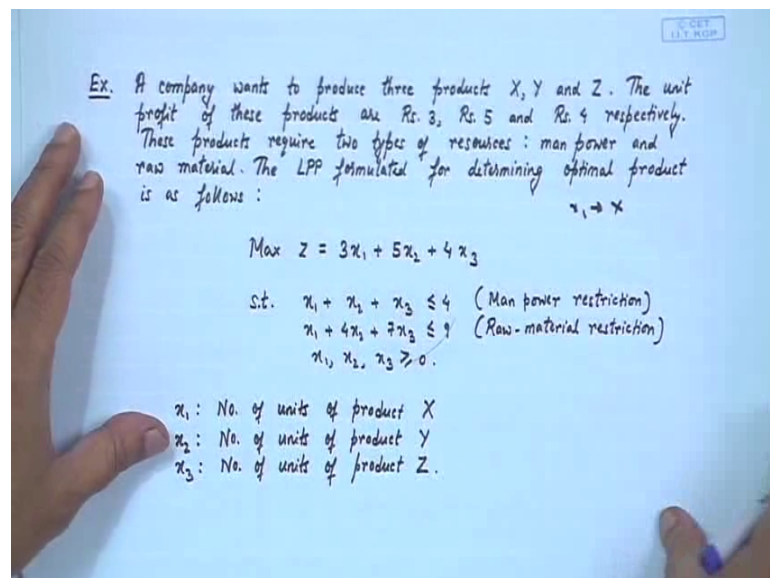 © CET
I.I.T. KGP
Ex. A company wants to produce three products X, Y and Z. The unit
profit of these products are Rs. 3, Rs. 5 and Rs. 4 respectively.
These products require two types of resources : man power and
raw material. The LPP formulated for determining optimal product
is as follows :
x₁ → X
Max Z = 3x₁ + 5x₂ + 4x₃
s.t. x₁ + x₂ + x₃ ≤ 4 (Man power restriction)
x₁ + 4x₂ + 7x₃ ≤ 9 (Raw-material restriction)
x₁, x₂, x₃ ≥ 0.
x₁ : No. of units of product X
x₂ : No. of units of product Y
x₃ : No. of units of product Z.